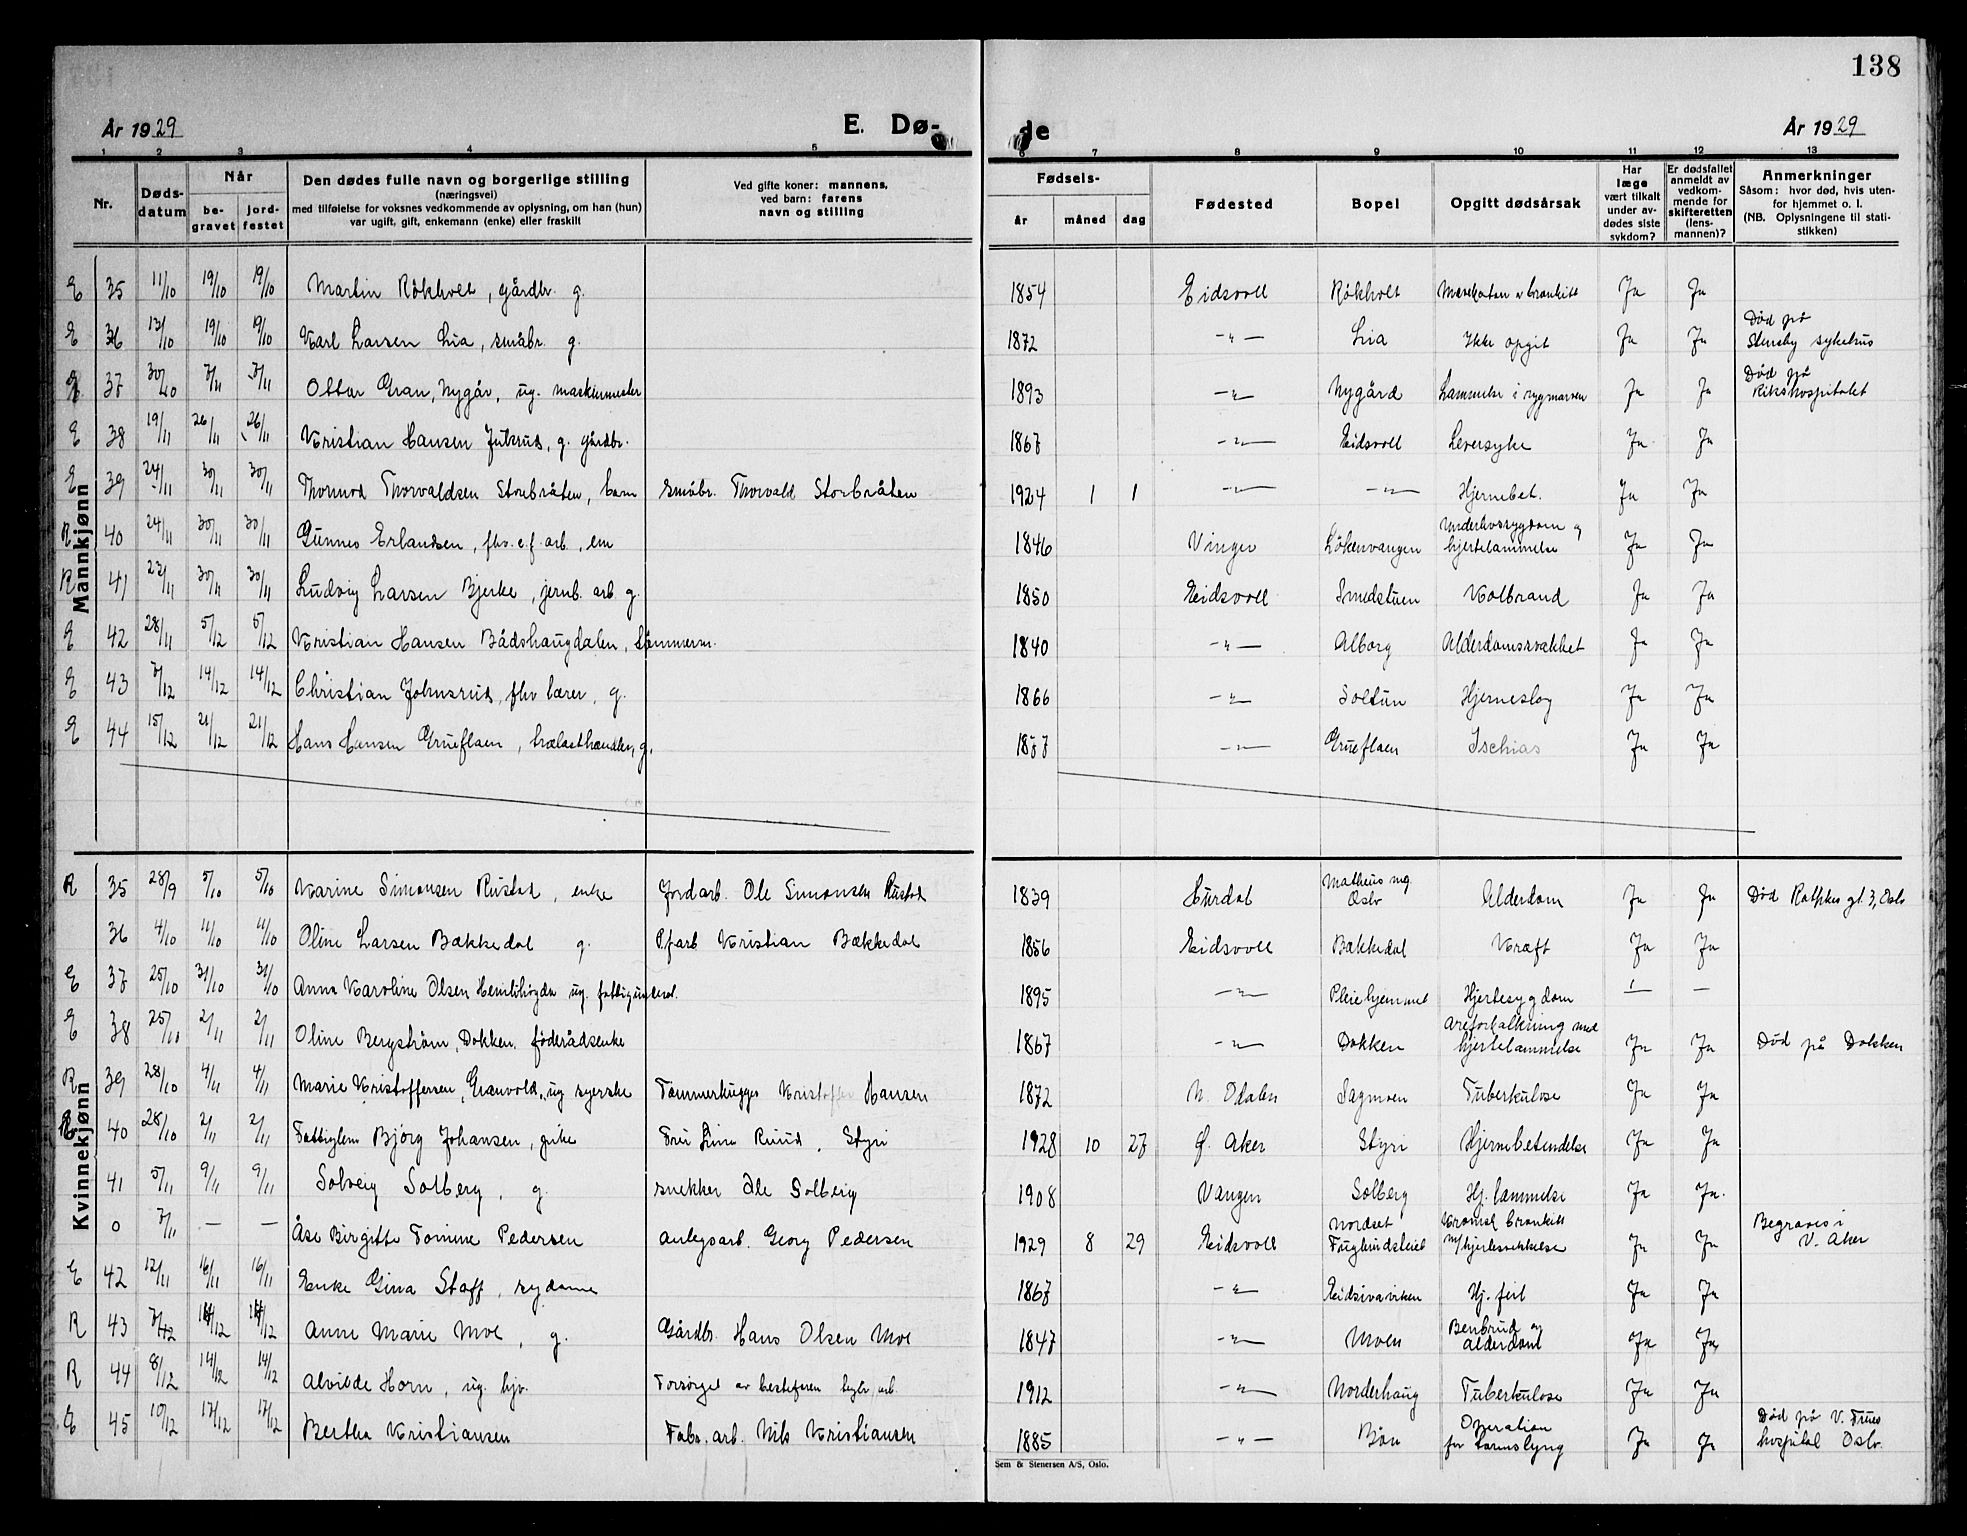 138
År 1929 E. Dø- de År 1929
1 2 3 4 5 6 7 8 9 10 11 12 13
Nr. Døds-datum Når be-gravet jord-festet Den dødes fulle navn og borgerlige stilling (næringsvei) med tilføielse for voksnes vedkommende av oplysning, om han (hun) var ugift, gift, enkemann (enke) eller fraskilt Ved gifte koner: mannens, ved barn: farens navn og stilling Fødsels- år måned dag Fødested Bopel Opgitt dødsårsak Har læge vært tilkalt under av-dødes siste sykdom? Er dødsfallet anmeldt av vedkom-mende for skifteretten (lens-mannen)? Anmerkninger Såsom: hvor død, hvis uten-for hjemmet o. l. (NB. Oplysningene til stati-stikken)
Mannkjønn
E 35 11/10 19/10 19/10 Martin Røkholt, gårdbr. g. 1854 Eidsvoll Røkholt bronkitt Ja Ja
E 36 13/10 19/10 19/10 Karl Larsen Lia, småbr. g. 1872 —"— Lia Ikke opgit Ja Ja Død på Stensby sykehus
E 37 30/10 7/11 7/11 Ottar Gran, Nygår, ug. maskinmester 1893 —"— Nygård Lammelse i rygmarven Ja Ja Død på Rikshospitalet
E 38 19/11 26/11 26/11 Kristian Hansen Julsrud, g. gårdbr. 1867 —"— Eidsvoll Leversyke Ja Ja
E 39 24/11 30/11 30/11 Thormod Thorvaldsen Storbråten, barn småbr. Thorvald Storbråten 1924 1 1 —"— —"— Hjernebet. Ja Ja
R 40 24/11 30/11 30/11 Gunnes Erlandsen, fhv. c.f. arb., em 1846 Vinger Løkenvangen Underlivssygdom og hjertelammelse Ja Ja
R 41 23/11 30/11 30/11 Ludvig Larsen Bjerke, jernb. arb. g. 1850 Eidsvoll Smedstuen Kolbrand Ja Ja
E 42 28/11 5/12 5/12 Kristian Hansen Bådshaugdalen, tømmerm. 1840 —"— Alborg Alderdomssvakhet Ja Ja
E 43 7/12 14/12 14/12 Christian Johnsrud, fhv lærer, g. 1866 —"— Soltun Hjerneslag Ja Ja
E 44 15/12 21/12 21/12 Hans Hansen Grueflaen, trælasthandler, g. 1887 —"— Grueflaen Ischias Ja Ja
Kvinnekjønn
R 35 28/9 5/10 5/10 Karine Simonsen Rustad, enke Jordarb. Ole Simonsen Rustad 1839 Hurdal Oslo Alderdom Ja Ja Død gt. 3, Oslo
36 4/10 11/10 11/10 Oline Larsen Bækkedal g. Pf arb Kristian Bækkedal 1856 Eidsvoll Bækkedal Kræft Ja Ja
E 37 25/10 31/10 31/10 Anna Karoline Olsen Hemlihøgda ug. fattigunderst. 1895 —"— Pleiehjemmet Hjertesygdom — —
E 38 25/10 2/11 2/11 Oline Bergstrøm, Dokken. føderådsenke 1867 —"— Dokken Areforkalkning med hjertelammelse Ja Ja Død på Dokken
R 39 28/10 4/11 4/11 Marie Kristoffersen, Granvold, ug syerske Tømmerhugger Kristoffer Hansen 1872 N. Odalen Sagmoen Tuberkulose Ja Ja
40 28/10 2/11 2/11 Fattiglem Bjørg Johansen, pike Fru Lina Ruud, Styri 1928 10 27 Ø. Aker Styri Hjernebetendelse Ja Ja
41 5/11 9/11 9/11 Solveig Solberg, g. snekker Ole Solberg 1908 Vangen Solberg Hj. lammelse Ja Ja
0 7/11 — — Åse Birgitte Tomine Pedersen anlegsarb. Georg Pedersen 1929 8 29 Eidsvoll Nordset Kronisk bronkitt m/hjertesvekkelse Ja Ja Begraves i V. Aker
E 42 12/11 16/11 16/11 Enke Gina Staff, sydame 1867 —"— Eidsivavirken Hj. feil Ja Ja
R 43 7/12 14/12 14/12 Anne Marie Moe, g. Gårdbr. Hans Olsen Moe 1847 —"— Moen Benbrud og alderdom Ja Ja
R 44 8/12 14/12 14/12 Alvilde Horn, ug. hjv. Forsørget av bestefaren arb. 1912 —"— Norderhaug Tuberkulose Ja Ja
E 45 10/12 17/12 17/12 Bertha Kristiansen Fabr. arb. Nils Kristiansen 1885 —"— Bøn Operation for tarmslyng Ja Ja Død på V. Frues hospital Oslo.
Sem & Stenersen A/S, Oslo.